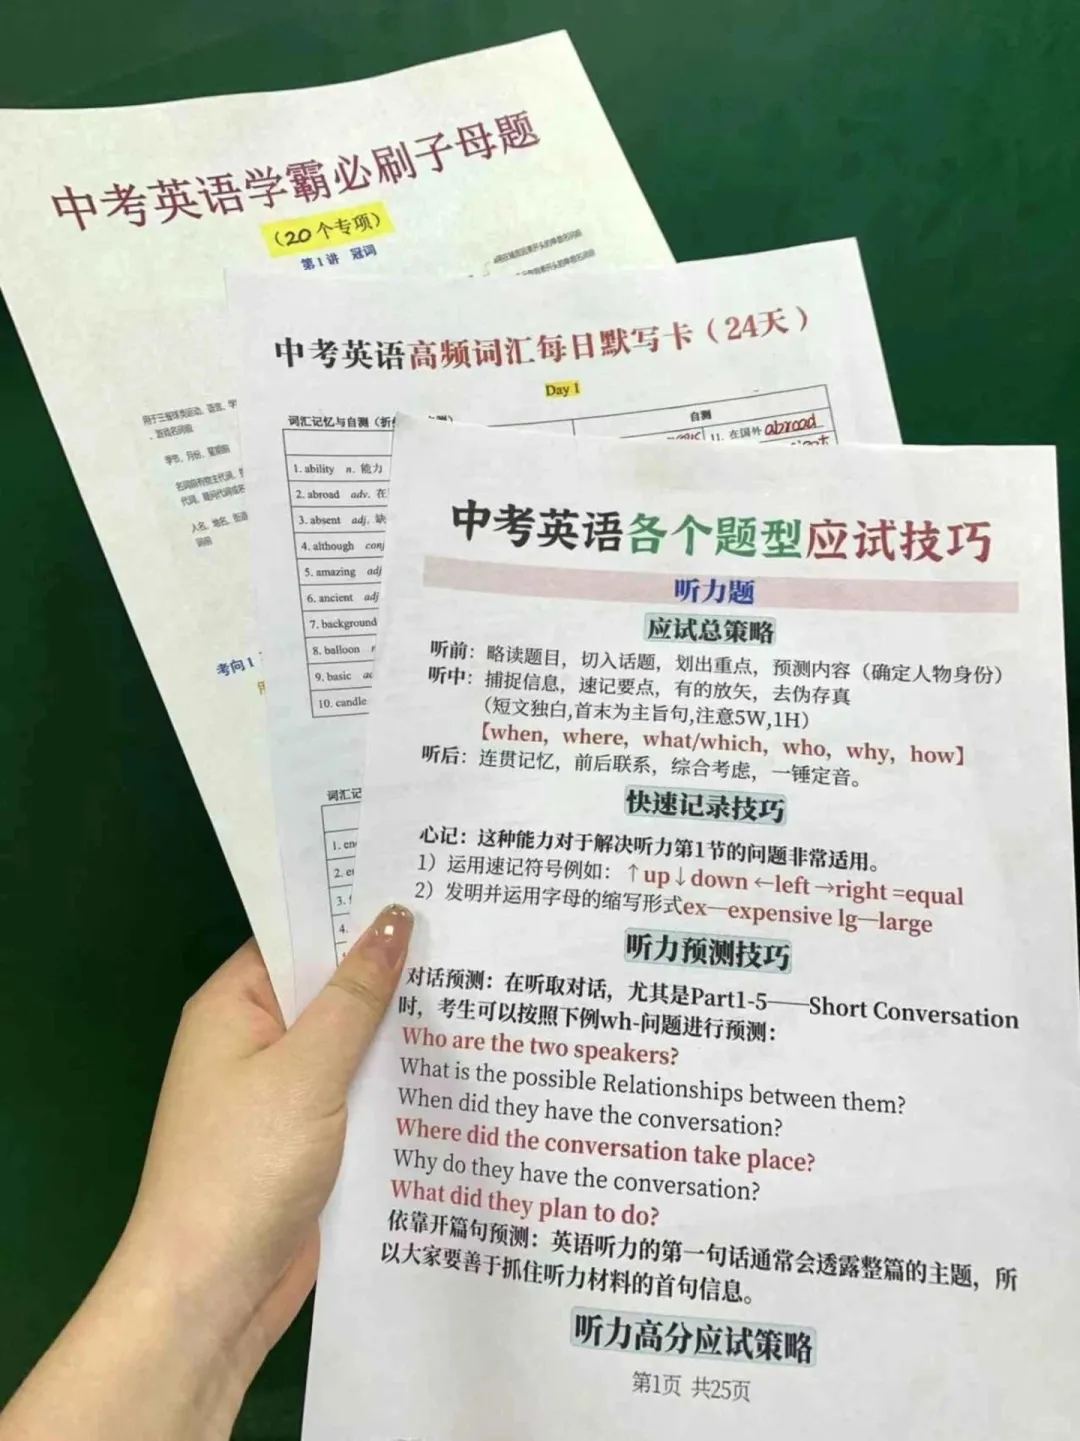 中考英语学霸必刷子母题
（20个专项）
第1讲 冠词
季节、月份、星期前
考向1
中考英语高频词汇每日默写卡（24天）
Day 1
词汇记忆与自测（折
自测
11. 在国外 abroad
1. ability n. 能力
2. abroad adv. 在
3. absent adj. 缺
4. although conj
5. amazing adj
6. ancient adj
7. background
8. balloon
9. basic
10. candle
词汇记
1. en
2. e
3.
4.
中考英语各个题型应试技巧
听力题
应试总策略
听前：略读题目，切入话题，划出重点，预测内容（确定人物身份）
听中：捕捉信息，速记要点，有的放矢，去伪存真
（短文独白,首末为主旨句,注意5W,1H）
【when，where，what/which，who，why，how】
听后：连贯记忆，前后联系，综合考虑，一锤定音。
快速记录技巧
心记：这种能力对于解决听力第1节的问题非常适用。
1）运用速记符号例如：↑up↓down ←left →right =equal
2）发明并运用字母的缩写形式ex—expensive lg—large
听力预测技巧
对话预测：在听取对话，尤其是Part1-5——Short Conversation
时，考生可以按照下例wh-问题进行预测：
Who are the two speakers?
What is the possible Relationships between them?
When did they have the conversation?
Where did the conversation take place?
Why do they have the conversation?
What did they plan to do?
依靠开篇句预测：英语听力的第一句话通常会透露整篇的主题，所
以大家要善于抓住听力材料的首句信息。
听力高分应试策略
第1页 共25页